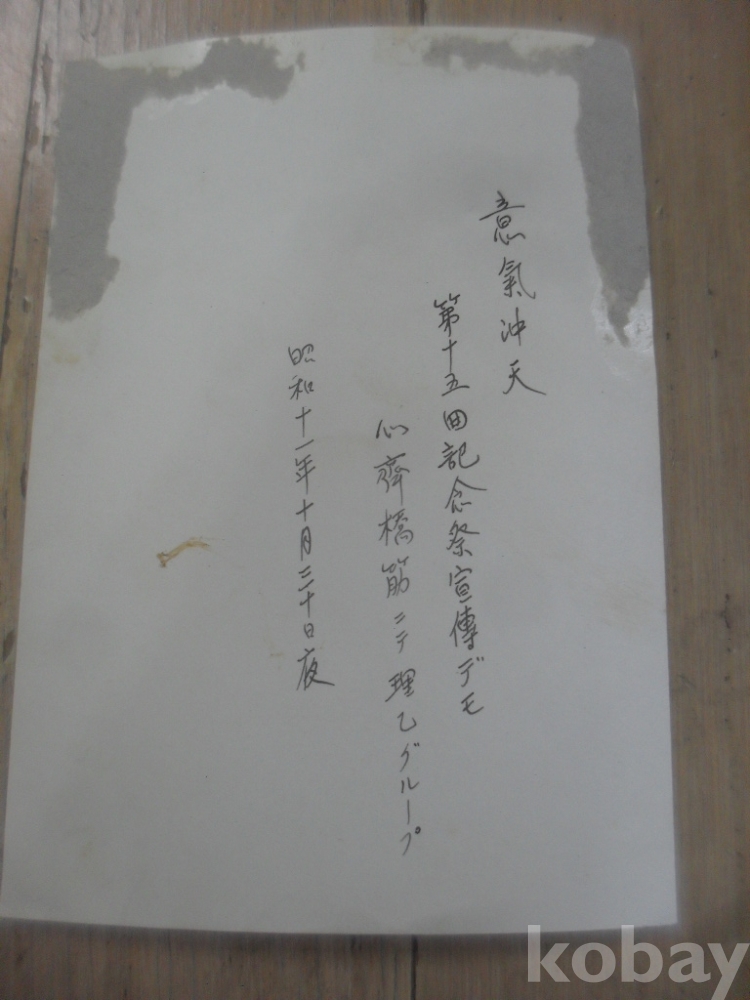 意氣沖天
第十五回記念祭宣傳デモ
心齊橋筋ニテ 理乙グループ
昭和十一年十月三十日夜
kobay